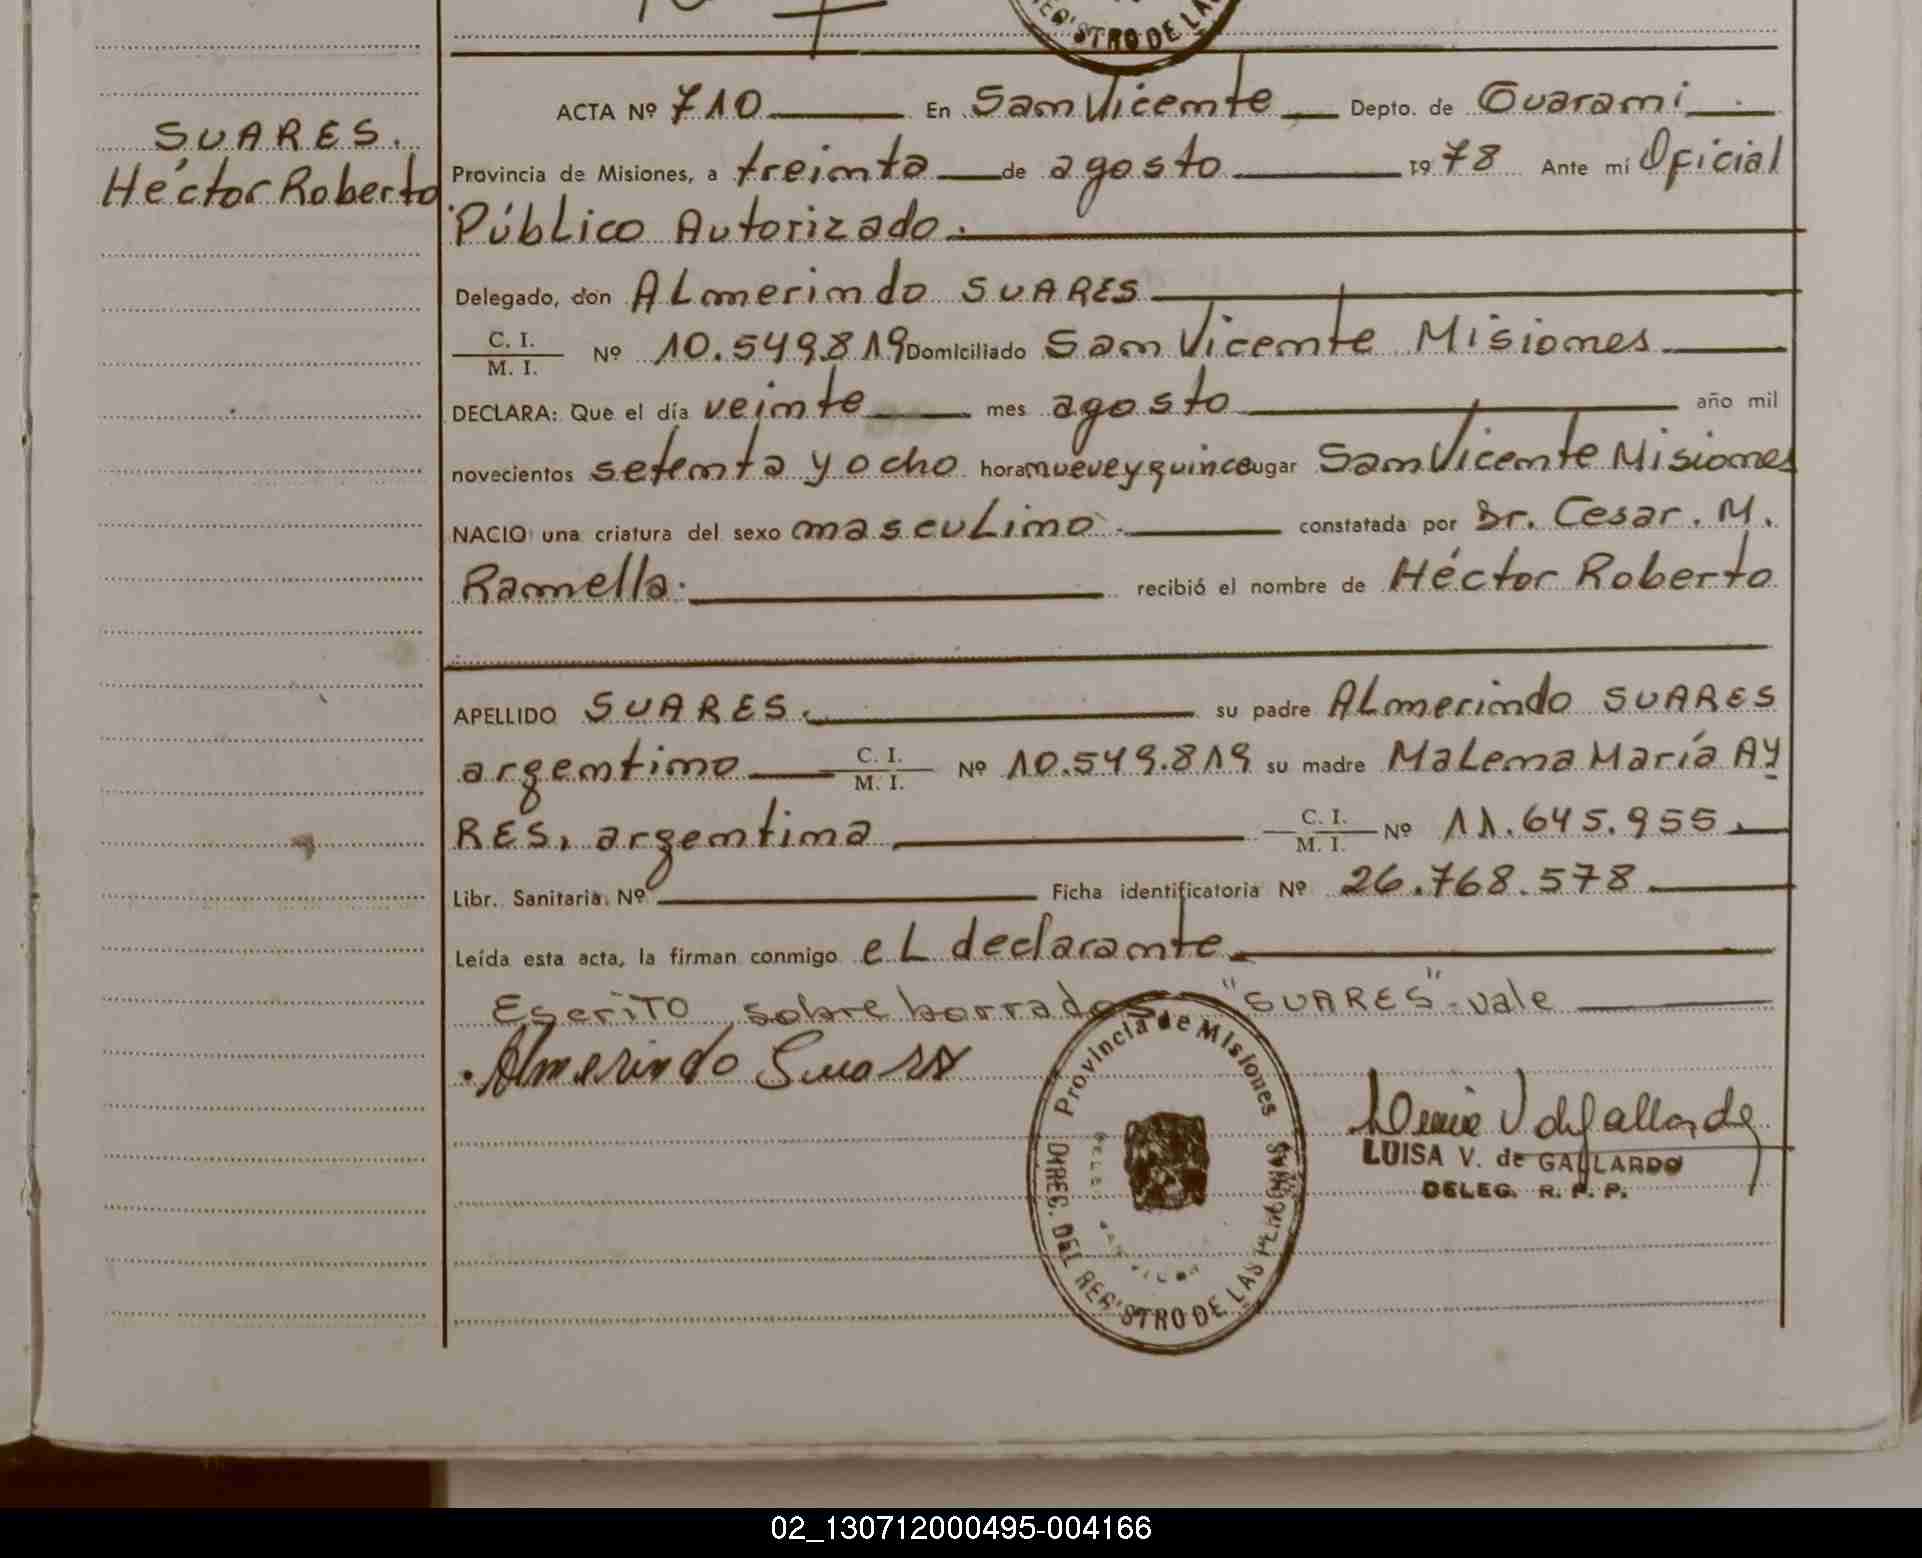 REGISTRO DE LAS
ACTA Nº 710 En San Vicente Depto. de Guarani
SUARES.
Héctor Roberto
Provincia de Misiones, a treinta de agosto 1978 Ante mí Oficial
Público Autorizado.
Delegado, don ALmerindo SUARES
C. I.
M. I. Nº 10.549.819 Domiciliado San Vicente Misiones
DECLARA: Que el día veinte mes agosto año mil
novecientos setenta y ocho hora nueve y quince lugar San Vicente Misiones
NACIO una criatura del sexo mascuLino. constatada por Dr. Cesar. M.
Ramella. recibió el nombre de Héctor Roberto
APELLIDO SUARES. su padre ALmerindo SUARES
argentino C. I.
M. I. Nº 10.549.819 su madre MaLena María AY
RES, argentina C. I.
M. I. Nº 11.645.955.
Libr. Sanitaria Nº Ficha identificatoria Nº 26.768.578
Leída esta acta, la firman conmigo eL declarante
Escrito sobre borrados "SUARES" vale
Almerindo Suares
Provincia de Misiones
DIREC. DEL REGISTRO DE LAS PERSONAS
LUISA V. de GALLARDO
DELEG. R. P. P.
02_130712000495-004166